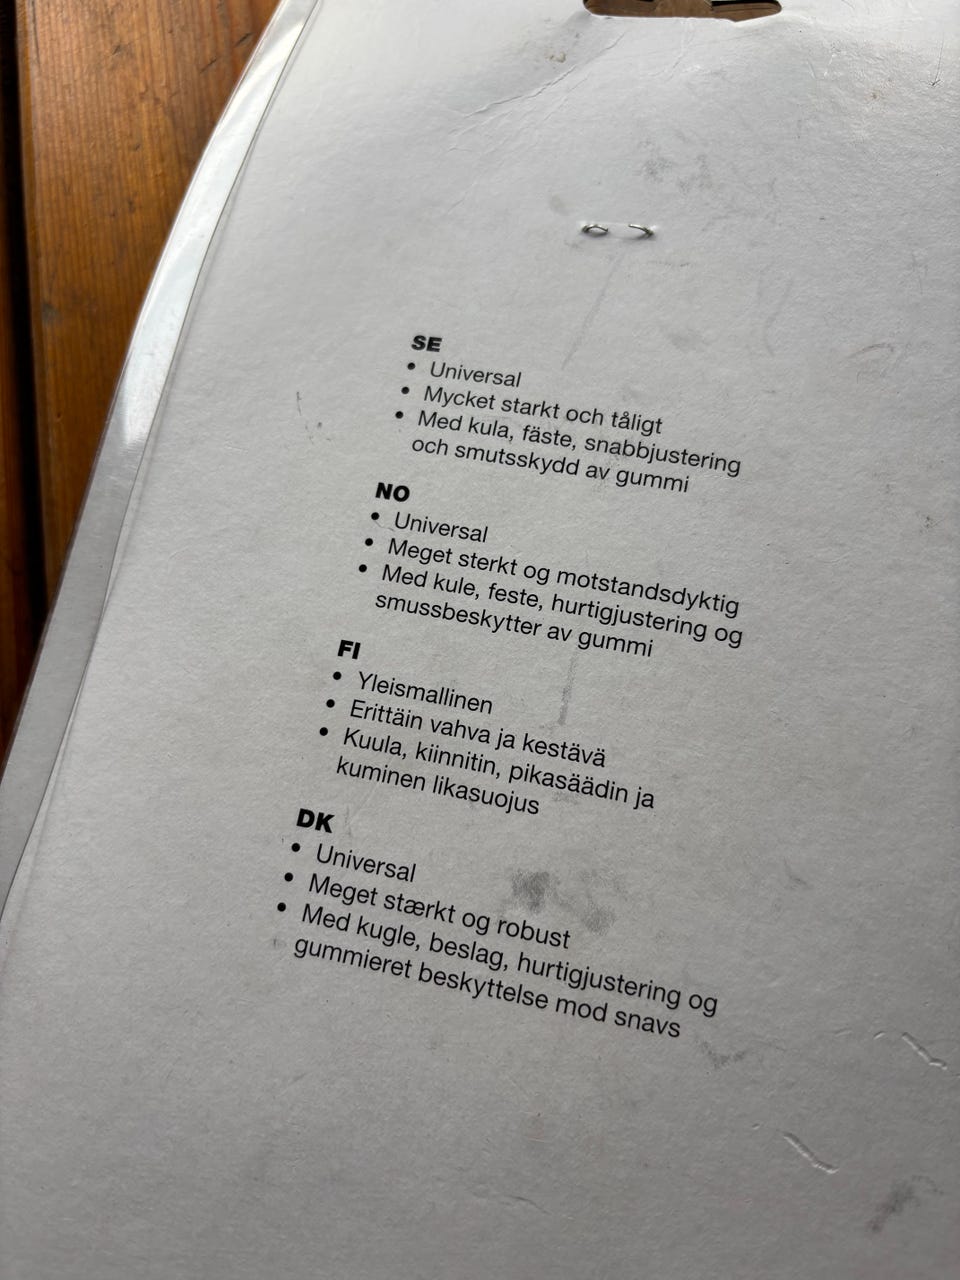 SE
• Universal
• Mycket starkt och tåligt
• Med kula, fäste, snabbjustering
och smutsskydd av gummi
NO
• Universal
• Meget sterkt og motstandsdyktig
• Med kule, feste, hurtigjustering og
smussbeskytter av gummi
FI
• Yleismallinen
• Erittäin vahva ja kestävä
• Kuula, kiinnitin, pikasäädin ja
kuminen likasuojus
DK
• Universal
• Meget stærkt og robust
• Med kugle, beslag, hurtigjustering og
gummieret beskyttelse mod snavs